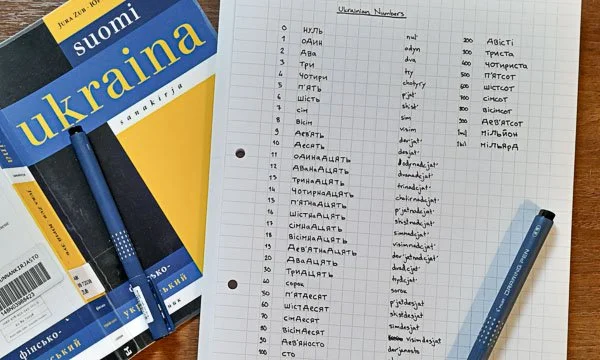 JURA ZUB
suomi
ukraina
sanakirja
фінсько-
український
DRAWING PEN
Ukrainian Numbers
0 нуль nul'
1 один odyn
2 два dva
3 три try
4 чотири chotyry
5 п'ять p'jat'
6 шість shist'
7 сім sim
8 вісім visim
9 дев'ять dev'jat'
10 десять desjat'
11 одинадцять odynadcjat'
12 дванадцять dvanadcjat'
13 тринадцять trinadcjat'
14 чотирнадцять
15 п'ятнадцять p'jatnadcjat'
16 шістнадцять shistnadcjat'
17 сімнадцять simnadcjat'
18 вісімнадцять visimnadcjat'
19 дев'ятнадцять dev'jatnadcjat'
20 двадцять dvadcjat'
30 тридцять trydcjat'
40 сорок sorok
50 п'ятдесят p'jatdesjat
60 шістдесят shistdesjat
70 сімдесят simdesjat
80 вісімдесят visimdesjat
90 дев'яносто dev'janosto
100 сто
200 двісті
300 триста
400 чотириста
500 п'ятсот
600 шістсот
700 сімсот
800 вісімсот
900 дев'ятсот
1ml мільйон
1bl мільярд